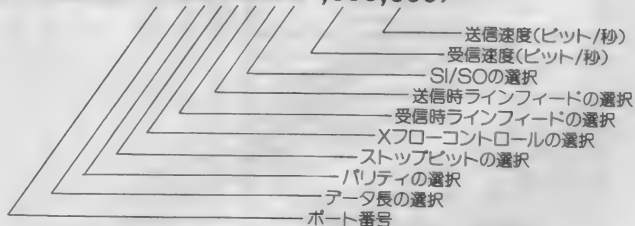 送信速度(ビット/秒)
受信速度(ビット/秒)
SI/SOの選択
送信時ラインフィードの選択
受信時ラインフィードの選択
Xフローコントロールの選択
ストップビットの選択
パリティの選択
データ長の選択
ポート番号